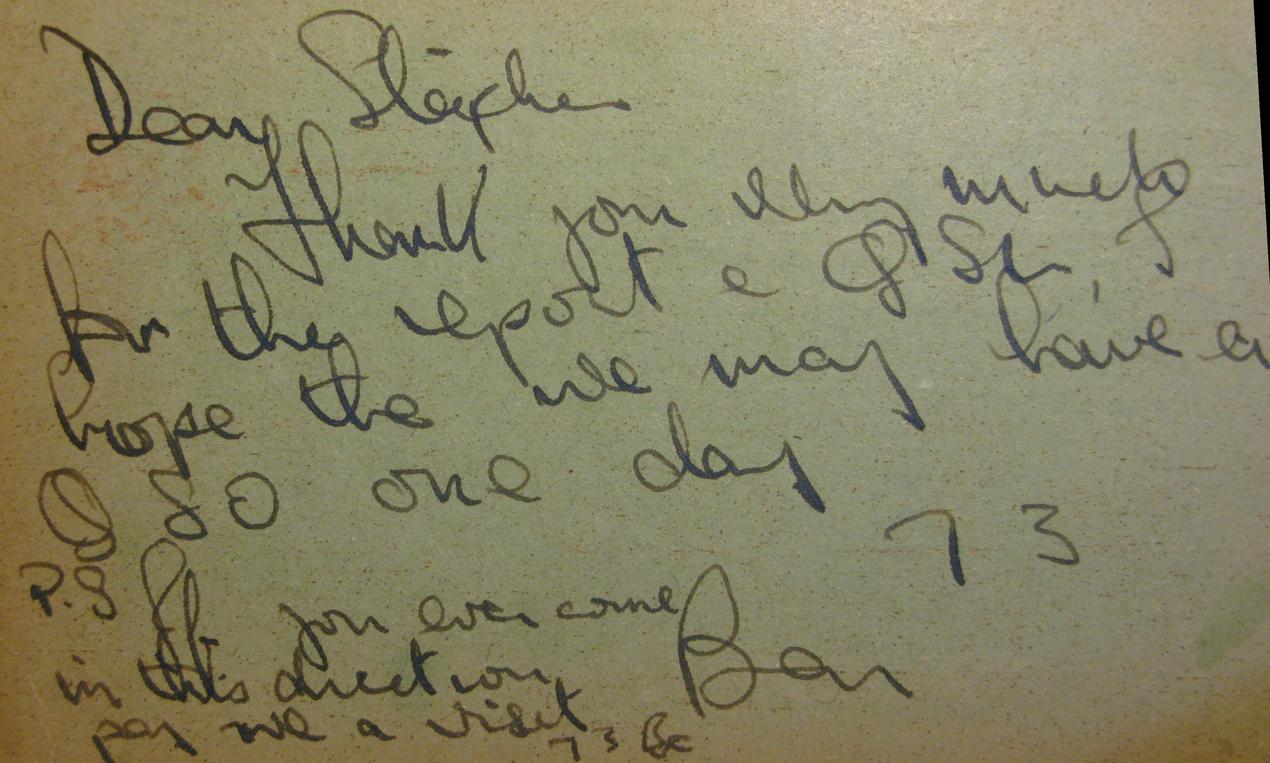 Dear Stephen
Thank you very much
for the report e QSL, I
hope the we may have a
QSO one day
73
P.S If you ever come
in this direction
pay me a visit
73